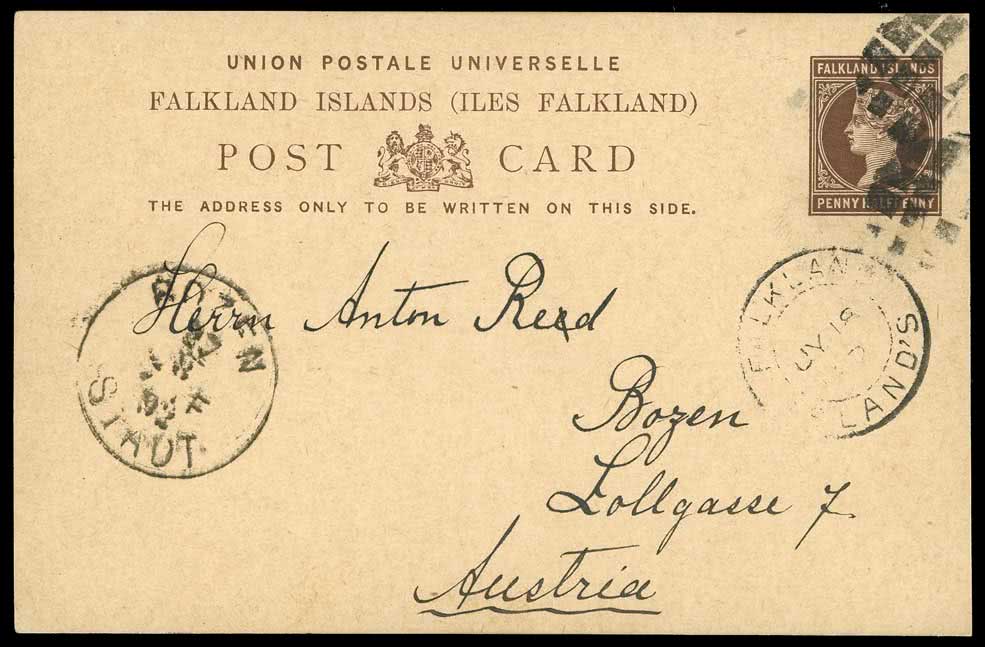 UNION POSTALE UNIVERSELLE
FALKLAND ISLANDS (ILES FALKLAND)
POST CARD
THE ADDRESS ONLY TO BE WRITTEN ON THIS SIDE.
FALKLAND ISLANDS
PENNY HALFPENNY
Herrn Anton Reed
Bozen
Lollgasse 7
Austria
BOZEN
STADT
FALKLAND
JY 18
LAND'S